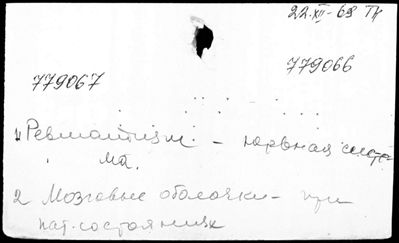 22.XII-68 Пк
779067
779066
1) Ревматизм - нервная систе-
ма.
2 Мозговые оболочки - при
пат. состояниях